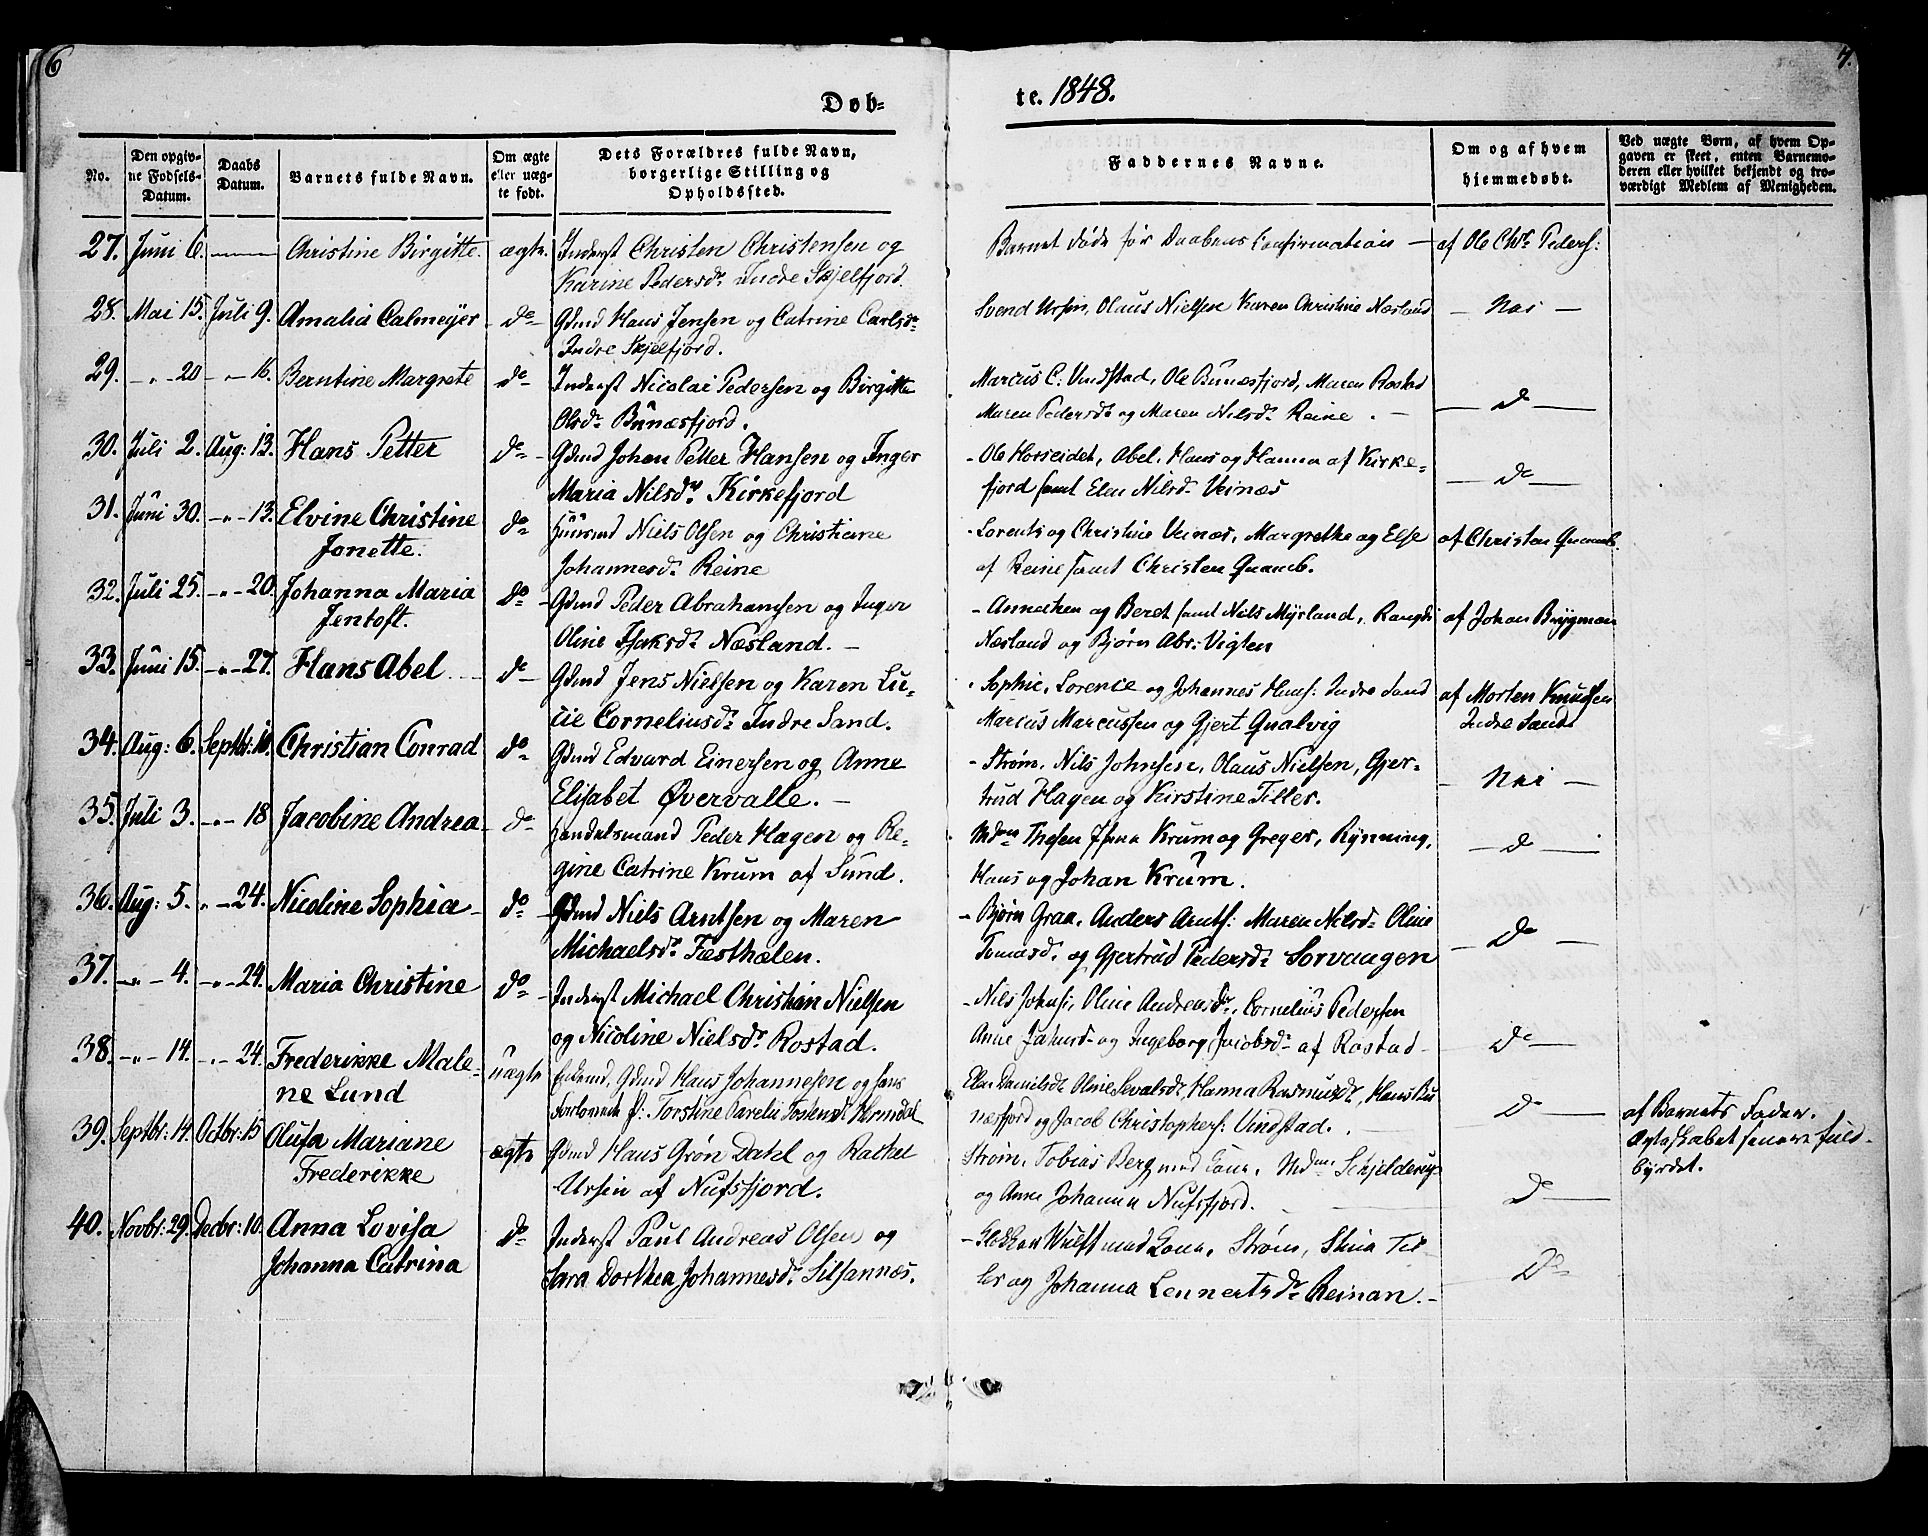 6
7.
Døb-
te. 1848.
No.
Den opgiv-
ne Fødsels-
Datum.
Daabs
Datum.
Barnets fulde Navn.
Om ægte
eller uæg-
te født.
Dets Forældres fulde Navn,
borgerlige Stilling og
Opholdssted.
Faddernes Navne.
Om og af hvem
hjemmedøbt.
Ved uægte Børn, af hvem Op-
gaven er skeet, enten Barnemo-
deren eller hvilket bekjendt og tro-
værdigt Medlem af Menigheden.
27. Juni 6. — Christine Birgitte. ægte. Inderst Christen Christensen og
Karine Pedersdr. Indre Skjelfjord.
Barnet døde før Daabens Confirmation — af Ole Chr. Peders:
28. Mai 15. Juli 9. Amalia Calmeyer — do — Gdmd Hans Jensen og Catrine Carlsdr
Indre Skjelfjord.
Svend Ursin, Olaus Nielsen Karen Christine Næsland — Nei —
29. — " — 20 — " — 16. Berntine Margrete do — Inderst Nicolai Pedersen og Birgitte
Olsdr Bunæsfjord.
Marcus C: Vindstad, Ole Bunæsfjord, Maren Rostad
Maren Pedersdr og Maren Nilsdr Reine. — do —
30. Juli 2. Aug: 13. Hans Petter do — Gdmd Johan Petter Hansen og Inger
Maria Nilsdr Kirkefjord
- Ole Horseidet, Abel, Hans og Hanna af Kirke-
fjord samt Elen Nilsdr Veinæs — do —
31. Juni 30. — " — 13. Elvine Christine
Jonette. do Huusmd Niels Olsen og Christiane
Johannesdr Reine
- Lorents og Christine Veinæs, Margrethe og Else
af Reine samt Christen Quamb. af Christen Quamb.
32. Juli 25. — " — 20. Johanna Maria
Jentoft. do — Gdmd Peder Abrahamsen og Inger
Oline Isaksdr Næsland. —
- Annæken og Beret samt Nils Myrland, Rangdi
Næsland og Bjørn Abr: Vigten af Johan Brygman
33. Juni 15. — " — 27. Hans Abel — do — Gdmd Jens Nielsen og Karen Lu-
cie Corneliusdr Indre Sand.
- Sophie, Lorence og Johannes Hans: Indre Sand
Marcus Marcussen og Gjert Qualvig af Morten Knudsen
Indre Sand
34. Aug: 6. Septbr: 10. Christian Conrad do Gdmd Edvard Einersen og Anne
Elisabet Øvervalle. —
- Strøm, Nils Johnsen, Olaus Nielsen, Gjer-
trud Hagen og Kirstine Tiller. — Nei —
35. Juli 3. — " — 18 Jacobine Andrea — do — Handelsmand Peder Hagen og Re-
gine Catrine Krum af Sund.
Mdm Thesen Krum og Greger, Rynning,
Hans og Johan Krum. — do —
36. Aug: 5. " — 24. Nicoline Sophia — do — Gdmd Niels Arntsen og Maren
Michaelsdr Festhælen.
- Bjørn Graa, Anders Arnts: Maren Nilsdr Oline
Tomasdr og Gjertrud Pedersdr Sørvaagen — do —
37. — " — 4. — " — 24. Maria Christine do — Inderst Michael Christian Nielsen
og Nicoline Nielsdr Rostad.
- Nils Johns:, Oline Andreasdr, Cornelius Pedersen
Anne og Ingeborg Jacobsdr af Rostad — do —
38. — " — 14. — " — 24. Frederikke Male-
ne Lund uægte Enkemd, Gdmd Hans Johannesen og hans
forlovede P: Torstine Karelia
Elen Danielsdr Oline Sevalsdr, Hanna Rasmusdr, Hans Bu
næsfjord og Jacob Christophers: Vindstad. — do — af Barnets Fader.
Ægteskabet senere fuld-
byrdet.
39. Septbr: 14. Octbr: 15 Olufa Mariane
Frederikke ægte Gdmd Hans Grøn Datel og Rachel
Ursin af Nufsfjord.
Strøm, Tobias Berg med Kone, Mdm Schjelderup
og Anne Johanna Nufsfjord. — do —
40. Novbr: 29. Decbr: 10. Anna Lovisa
Johanna Catrina do Inderst Paul Andreas Olsen og
Sara Dorthea Johannesdr Silsannæs.
- Klokker Wulff med Kone, Strøm, Stina Til-
ler og Johanna Lennertsdr Reinan. — do